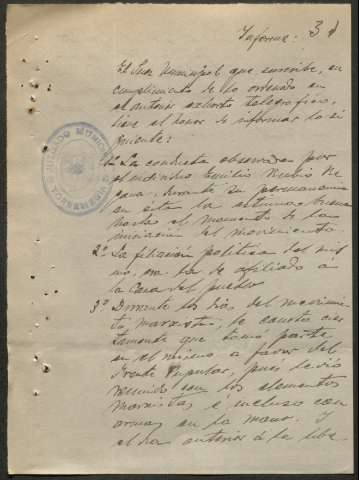 Informe: 3
El Juez Municipal que suscribe, en
cumplimiento de lo ordenado en
el anterior exhorto telegrafico,
tiene el honor de informar lo si
guiente:
1º La conducta observada por
el individuo Emilio Rubio
durante su permanencia
en esta la estima buena
hasta el momento de la
iniciación del movimiento.
2º La filiacion politica del mis
mo, era la de afiliado á
la Casa del pueblo
3º Durante los dias del movimien
to marxista, le consta cier
tamente que tomó parte
en el mismo a favor del
Frente Popular, pues le vió
reunido con los elementos
marxistas é incluso con
armas en la mano. Y
el dia anterior á la libe
JUZGADO MUNICIPAL